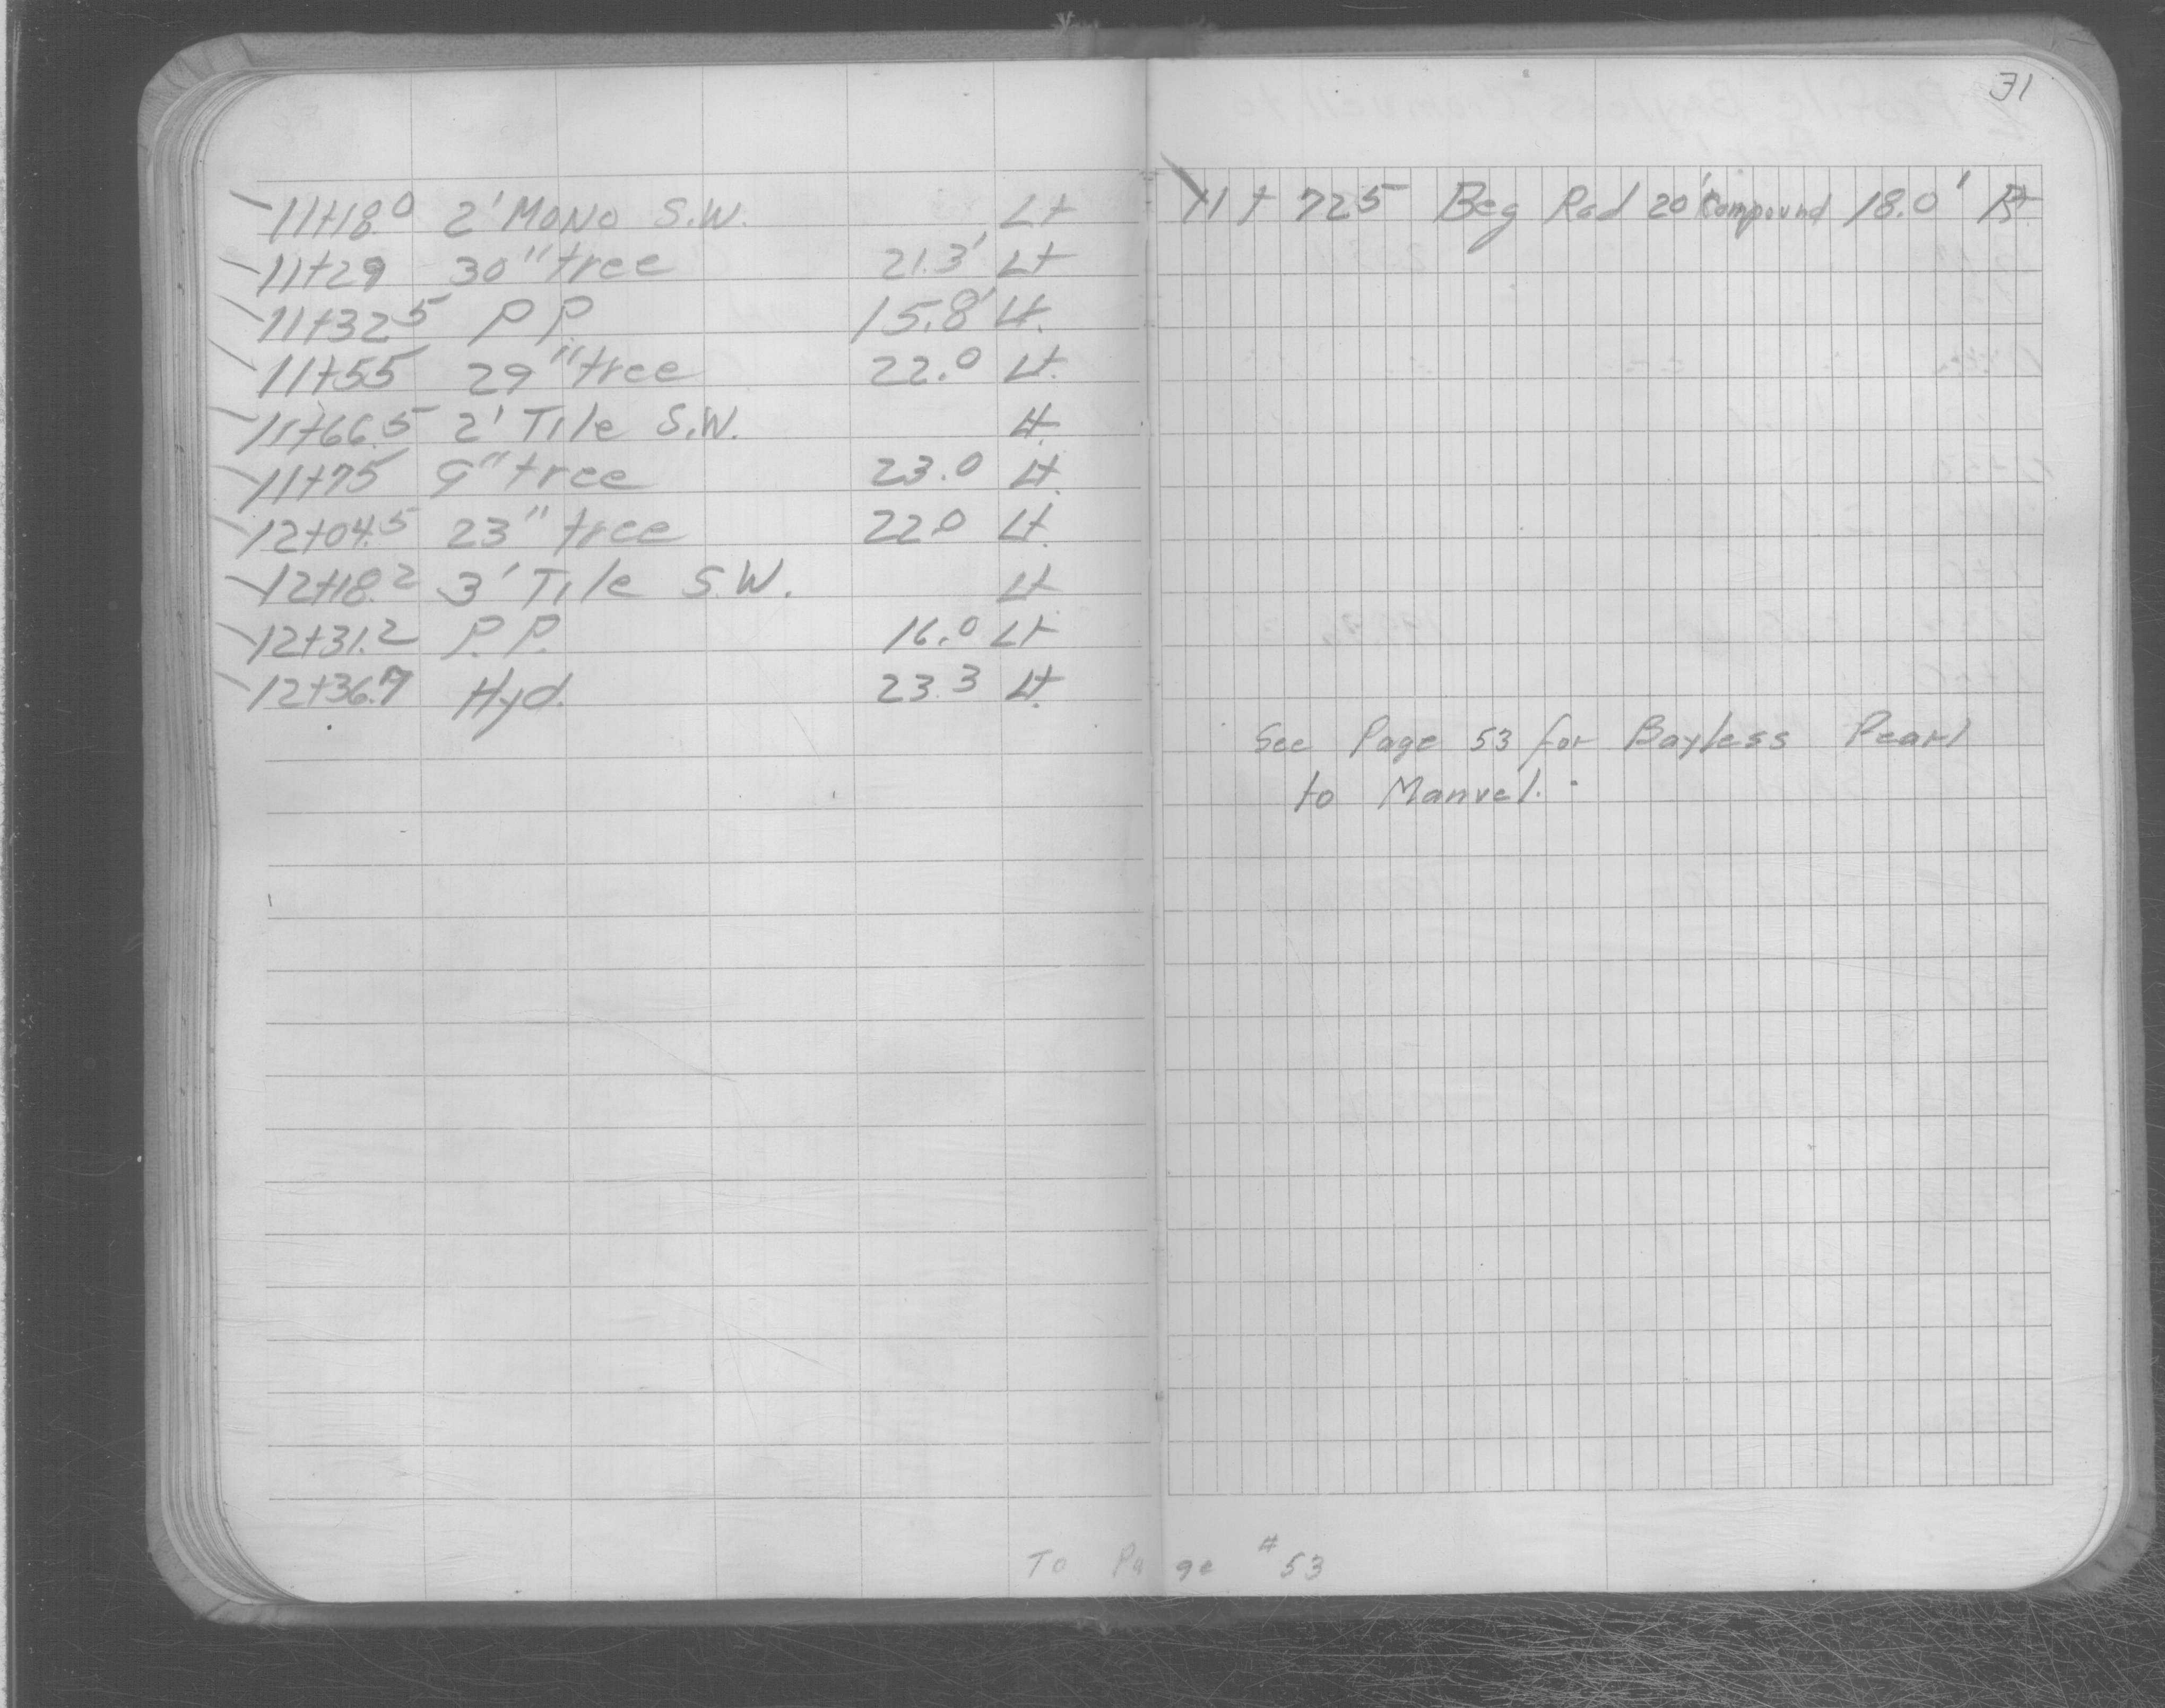 11+18.0 2' Mono S.W. Lt
11+29 30" tree 21.3' Lt
11+32 5 P.P. 15.8' Lt.
11+55 29" tree 22.0 Lt.
11+66.5 2' Tile S.W. Lt.
11+75 9" tree 23.0 Lt.
12+04.5 23" tree 22.0 Lt.
12+18.2 3' Tile S.W. Lt
12+31.2 P.P. 16.0 Lt
12+36.7 Hyd. 23.3 Lt.
31
11+72 5 Beg Rad 20' Compound 18.0' Rt
See Page 53 for Bayless Pearl
to Manvel.
To Page #53